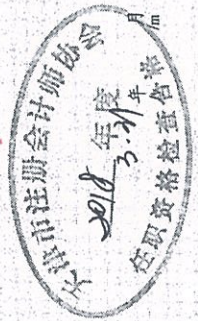 天津市注册会计师协会
2018 年度
任职资格检查合格
3.21 年 月 日